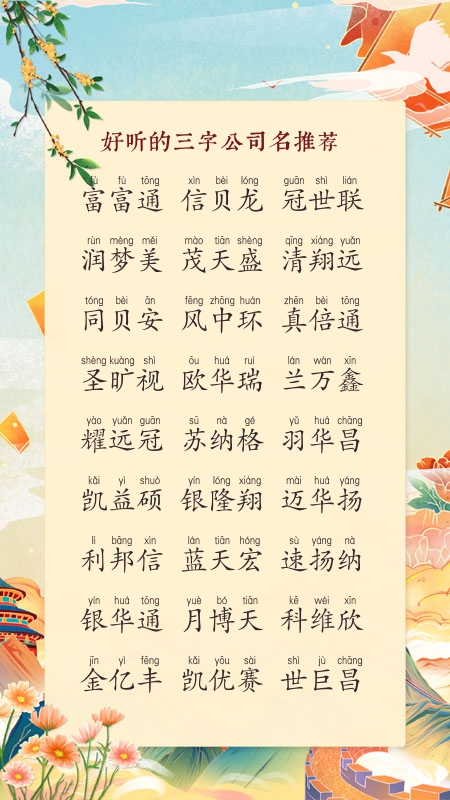 好听的三字公司名推荐
fù fù tōng xìn bèi lóng guān shì lián
富富通 信贝龙 冠世联
rùn mèng měi mào tiān shèng qīng xiáng yuǎn
润梦美 茂天盛 清翔远
tóng bèi ān fēng zhōng huán zhēn bèi tōng
同贝安 风中环 真倍通
shèng kuàng shì ōu huá ruì lán wàn xīn
圣旷视 欧华瑞 兰万鑫
yào yuǎn guān sū nà gé yǔ huá chāng
耀远冠 苏纳格 羽华昌
kǎi yì shuò yín lóng xiáng mài huá yáng
凯益硕 银隆翔 迈华扬
lì bāng xìn lán tiān hóng sù yáng nà
利邦信 蓝天宏 速扬纳
yín huá tōng yuè bó tiān kē wéi xīn
银华通 月博天 科维欣
jīn yì fēng kǎi yōu sài shì jù chāng
金亿丰 凯优赛 世巨昌